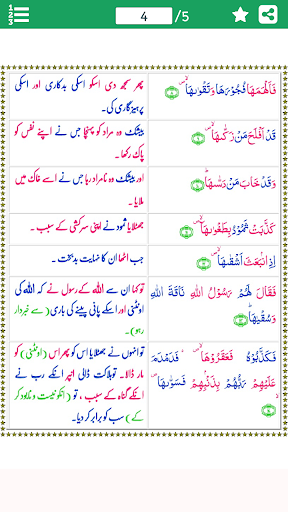 4 /5
فَاَلْهَمَهَا فُجُوْرَهَا وَتَقْوٰىهَا ۙ
پھر سمجھ دی اسکو اسکی بدکاری اور اسکی
پرہیزگاری کی۔
قَدْ اَفْلَحَ مَنْ زَكّٰىهَا ۙ
بیشک وہ مراد کو پہنچا جس نے اپنے نفس کو
پاک رکھا۔
وَقَدْ خَابَ مَنْ دَسّٰىهَا ؕ
اور بیشک وہ نامراد رہا جس نے اسے خاک میں
ملایا۔
كَذَّبَتْ ثَمُوْدُ بِطَغْوٰىهَا ۙ
جھٹلایا ثمود نے اپنی سرکشی کے سبب ۔
اِذِ انْۢبَعَثَ اَشْقٰىهَا ۙ
جب اٹھا ان کا نہایت بدبخت ۔
فَقَالَ لَهُمْ رَسُوْلُ اللّٰهِ نَاقَةَ اللّٰهِ
وَسُقْيٰهَا ؕ
تو کہا ان سے اللہ کے رسول نے کہ اللہ کی
اونٹنی اور اسکے پانی پینے کی باری (سے خبردار
رہو)۔
فَكَذَّبُوْهُ فَعَقَرُوْهَا ۙ فَدَمْدَمَ
عَلَيْهِمْ رَبُّهُمْ بِذَنْۢبِهِمْ فَسَوّٰىهَا ۙ
تو انہوں نے جھٹلایا اس کو پھر اس (اونٹنی) کو
مار ڈالا۔ تو ہلاکت ڈالی انپر انکے رب نے
انکے گناہ کے سبب ، تو (انکو نیست و نابود کر
کے) سب کو برابر کر دیا۔